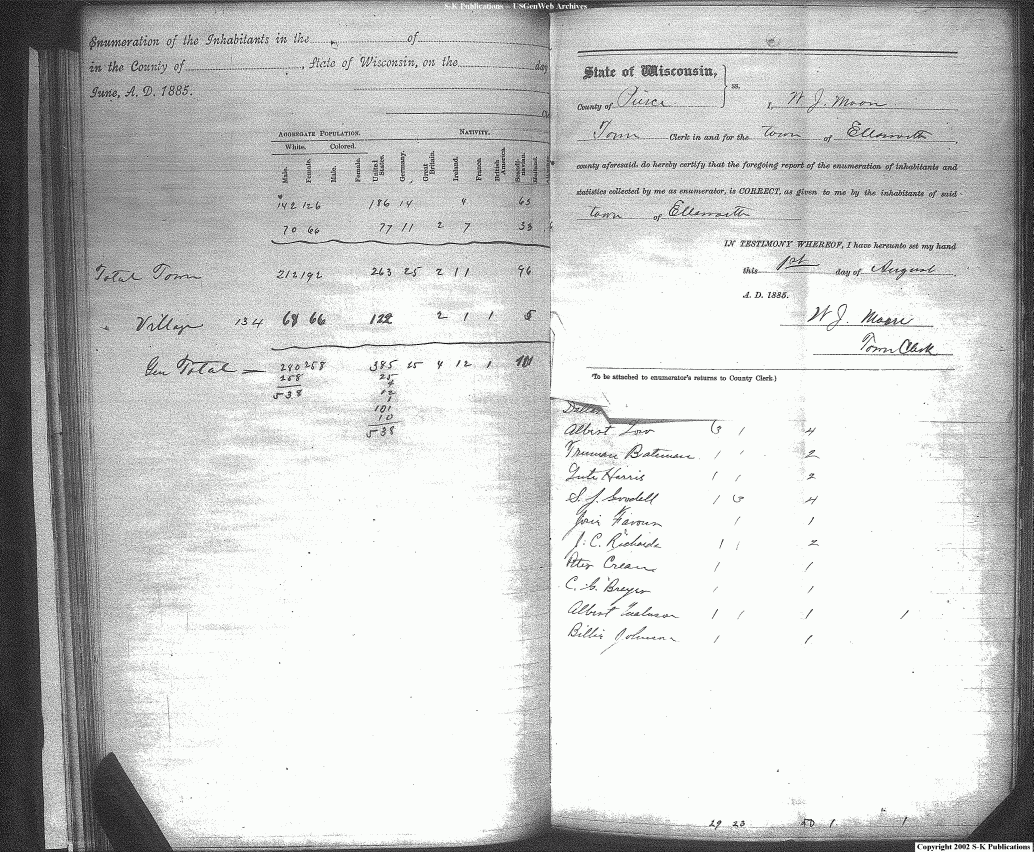 S-K Publications -- USGenWeb Archives
Enumeration of the Inhabitants in the of
in the County of , State of Wisconsin, on the day
June, A. D. 1885.
AGGREGATE POPULATION. NATIVITY.
White. Colored.
Male. Female. Male. Female. United States. Germany. Great Britain. Ireland. France. British America. Scandinavian. Holland.
142 126 186 14 4 63
70 66 77 11 2 7 33
Total Town 212 192 263 25 2 11 96
Village 134 68 66 122 2 1 1 5
Gen Total — 280 258 385 25 4 12 1 101
258 25
538 4
12
1
101
10
538
State of Wisconsin, } ss.
County of Pierce I, W J. Moon
Town Clerk in and for the town of Ellsworth
county aforesaid, do hereby certify that the foregoing report of the enumeration of inhabitants and
statistics collected by me as enumerator, is CORRECT, as given to me by the inhabitants of said
town of Ellsworth
IN TESTIMONY WHEREOF, I have hereunto set my hand
this 1st day of August
A. D. 1885.
W J. Moon
Town Clerk
(To be attached to enumerator's returns to County Clerk.)
Albert 3 1 4
Truman Bateman 1 1 2
Harris 1 1 2
S. J. Goodell 1 3 4
1 1
J. C. Richards 1 1 2
Peter 1 1
C. 1 1
Albert 1 1 1 1
Johnson 1 1
29 23 50 1 1
Copyright 2002 S-K Publications